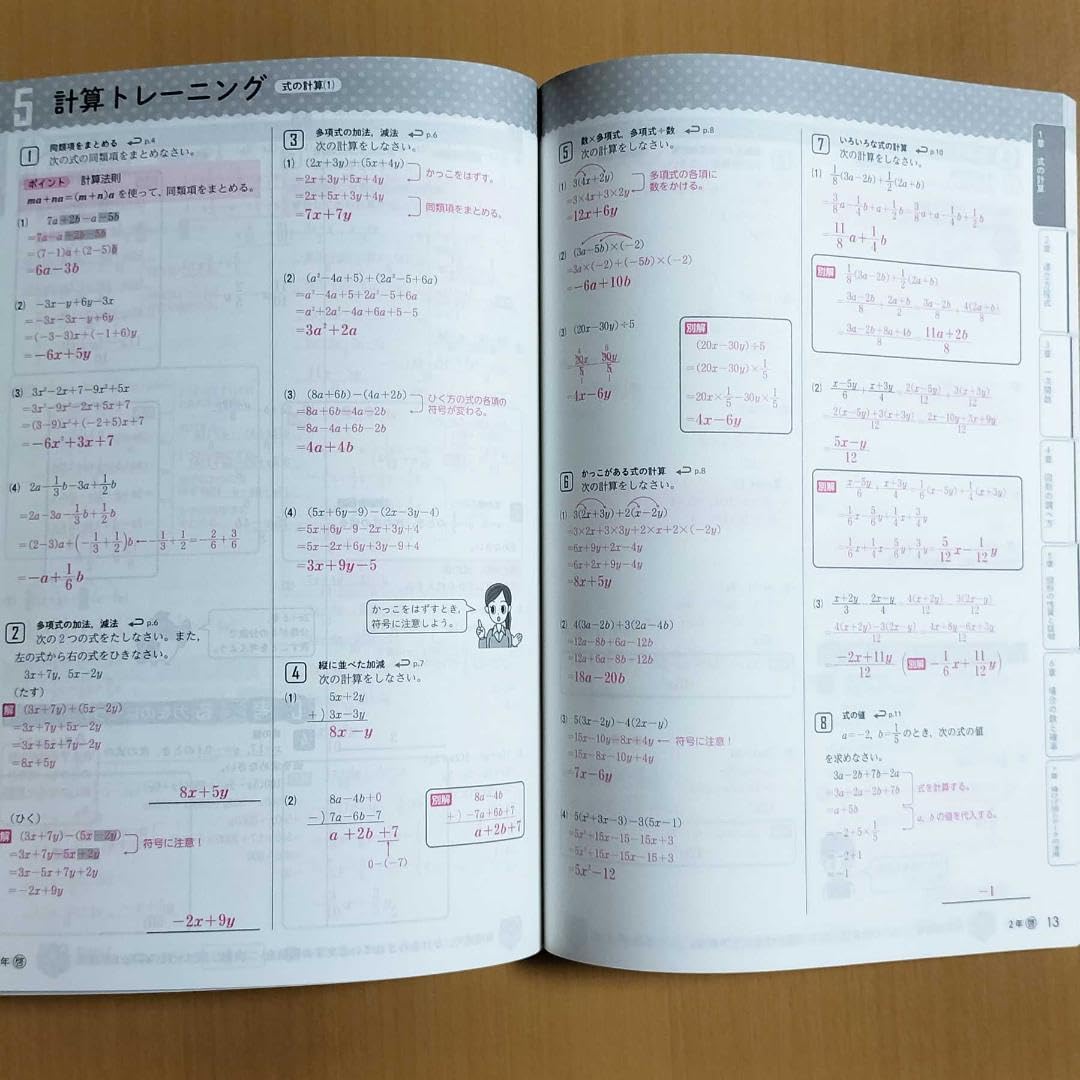 5 計算トレーニング 式の計算(1)
1 同類項をまとめる p.4
次の式の同類項をまとめなさい。
ポイント 計算法則
ma+na=(m+n)a を使って、同類項をまとめる。
(1) 7a+2b-a-5b
=7a-a+2b-5b
=(7-1)a+(2-5)b
=6a-3b
(2) -3x-y+6y-3x
=-3x-3x-y+6y
=(-3-3)x+(-1+6)y
=-6x+5y
(3) 3x²-2x+7-9x²+5x
=3x²-9x²-2x+5x+7
=(3-9)x²+(-2+5)x+7
=-6x²+3x+7
(4) 2a-1/3b-3a+1/2b
=2a-3a-1/3b+1/2b
=(2-3)a+(-1/3+1/2)b ← -1/3+1/2=-2/6+3/6
=-a+1/6b
2 多項式の加法,減法 p.6
次の2つの式をたしなさい。また,
左の式から右の式をひきなさい。
3x+7y, 5x-2y
(たす)
解 (3x+7y)+(5x-2y)
=3x+7y+5x-2y
=3x+5x+7y-2y
=8x+5y
8x+5y
(ひく)
解 (3x+7y)-(5x-2y)
=3x+7y-5x+2y
符号に注意!
=3x-5x+7y+2y
=-2x+9y
-2x+9y
年 啓
3 多項式の加法,減法 p.6
次の計算をしなさい。
(1) (2x+3y)+(5x+4y)
=2x+3y+5x+4y
かっこをはずす。
=2x+5x+3y+4y
=7x+7y
同類項をまとめる。
(2) (a²-4a+5)+(2a²-5+6a)
=a²-4a+5+2a²-5+6a
=a²+2a²-4a+6a+5-5
=3a²+2a
(3) (8a+6b)-(4a+2b)
=8a+6b-4a-2b
ひく方の式の各項の
符号が変わる。
=8a-4a+6b-2b
=4a+4b
(4) (5x+6y-9)-(2x-3y-4)
=5x+6y-9-2x+3y+4
=5x-2x+6y+3y-9+4
=3x+9y-5
かっこをはずすとき,
符号に注意しよう。
4 縦に並べた加減 p.7
次の計算をしなさい。
(1) 5x+2y
+) 3x-3y
8x-y
(2) 8a-4b+0
-) 7a-6b-7
a+2b+7
0-(-7)
別解 8a-4b
+) -7a+6b+7
a+2b+7
5 数×多項式,多項式÷数 p.8
次の計算をしなさい。
(1) 3(4x+2y)
=3×4x+3×2y
多項式の各項に
数をかける。
=12x+6y
(2) (3a-5b)×(-2)
=3a×(-2)+(-5b)×(-2)
=-6a+10b
(3) (20x-30y)÷5
=20x/5-30y/5
=4x-6y
別解
(20x-30y)÷5
=(20x-30y)×1/5
=20x×1/5-30y×1/5
=4x-6y
6 かっこがある式の計算 p.8
次の計算をしなさい。
(1) 3(2x+3y)+2(x-2y)
=3×2x+3×3y+2×x+2×(-2y)
=6x+9y+2x-4y
=6x+2x+9y-4y
=8x+5y
(2) 4(3a-2b)+3(2a-4b)
=12a-8b+6a-12b
=12a+6a-8b-12b
=18a-20b
(3) 5(3x-2y)-4(2x-y)
=15x-10y-8x+4y ← 符号に注意!
=15x-8x-10y+4y
=7x-6y
(4) 5(x²+3x-3)-3(5x-1)
=5x²+15x-15-15x+3
=5x²+15x-15x-15+3
=5x²-12
7 いろいろな式の計算 p.10
次の計算をしなさい。
(1) 1/8(3a-2b)+1/2(2a+b)
=3/8a-1/4b+a+1/2b=3/8a+a-1/4b+1/2b
=11/8a+1/4b
別解 1/8(3a-2b)+1/2(2a+b)
=3a-2b/8+2a+b/2=3a-2b/8+4(2a+b)/8
=3a-2b+8a+4b/8=11a+2b/8
(2) x-5y/6+x+3y/4=2(x-5y)/12+3(x+3y)/12
=2(x-5y)+3(x+3y)/12=2x-10y+3x+9y/12
=5x-y/12
別解 x-5y/6+x+3y/4=1/6(x-5y)+1/4(x+3y)
=1/6x-5/6y+1/4x+3/4y
=1/6x+1/4x-5/6y+3/4y=5/12x-1/12y
(3) x+2y/3-2x-y/4=4(x+2y)/12-3(2x-y)/12
=4(x+2y)-3(2x-y)/12=4x+8y-6x+3y/12
=-2x+11y/12 (別解 -1/6x+11/12y)
8 式の値 p.11
a=-2, b=1/5のとき,次の式の値
を求めなさい。
3a-2b+7b-2a
=3a-2a-2b+7b
式を計算する。
=a+5b
=-2+5×1/5
a, bの値を代入する。
=-2+1
=-1
-1
2年 啓 13
1章 式の計算